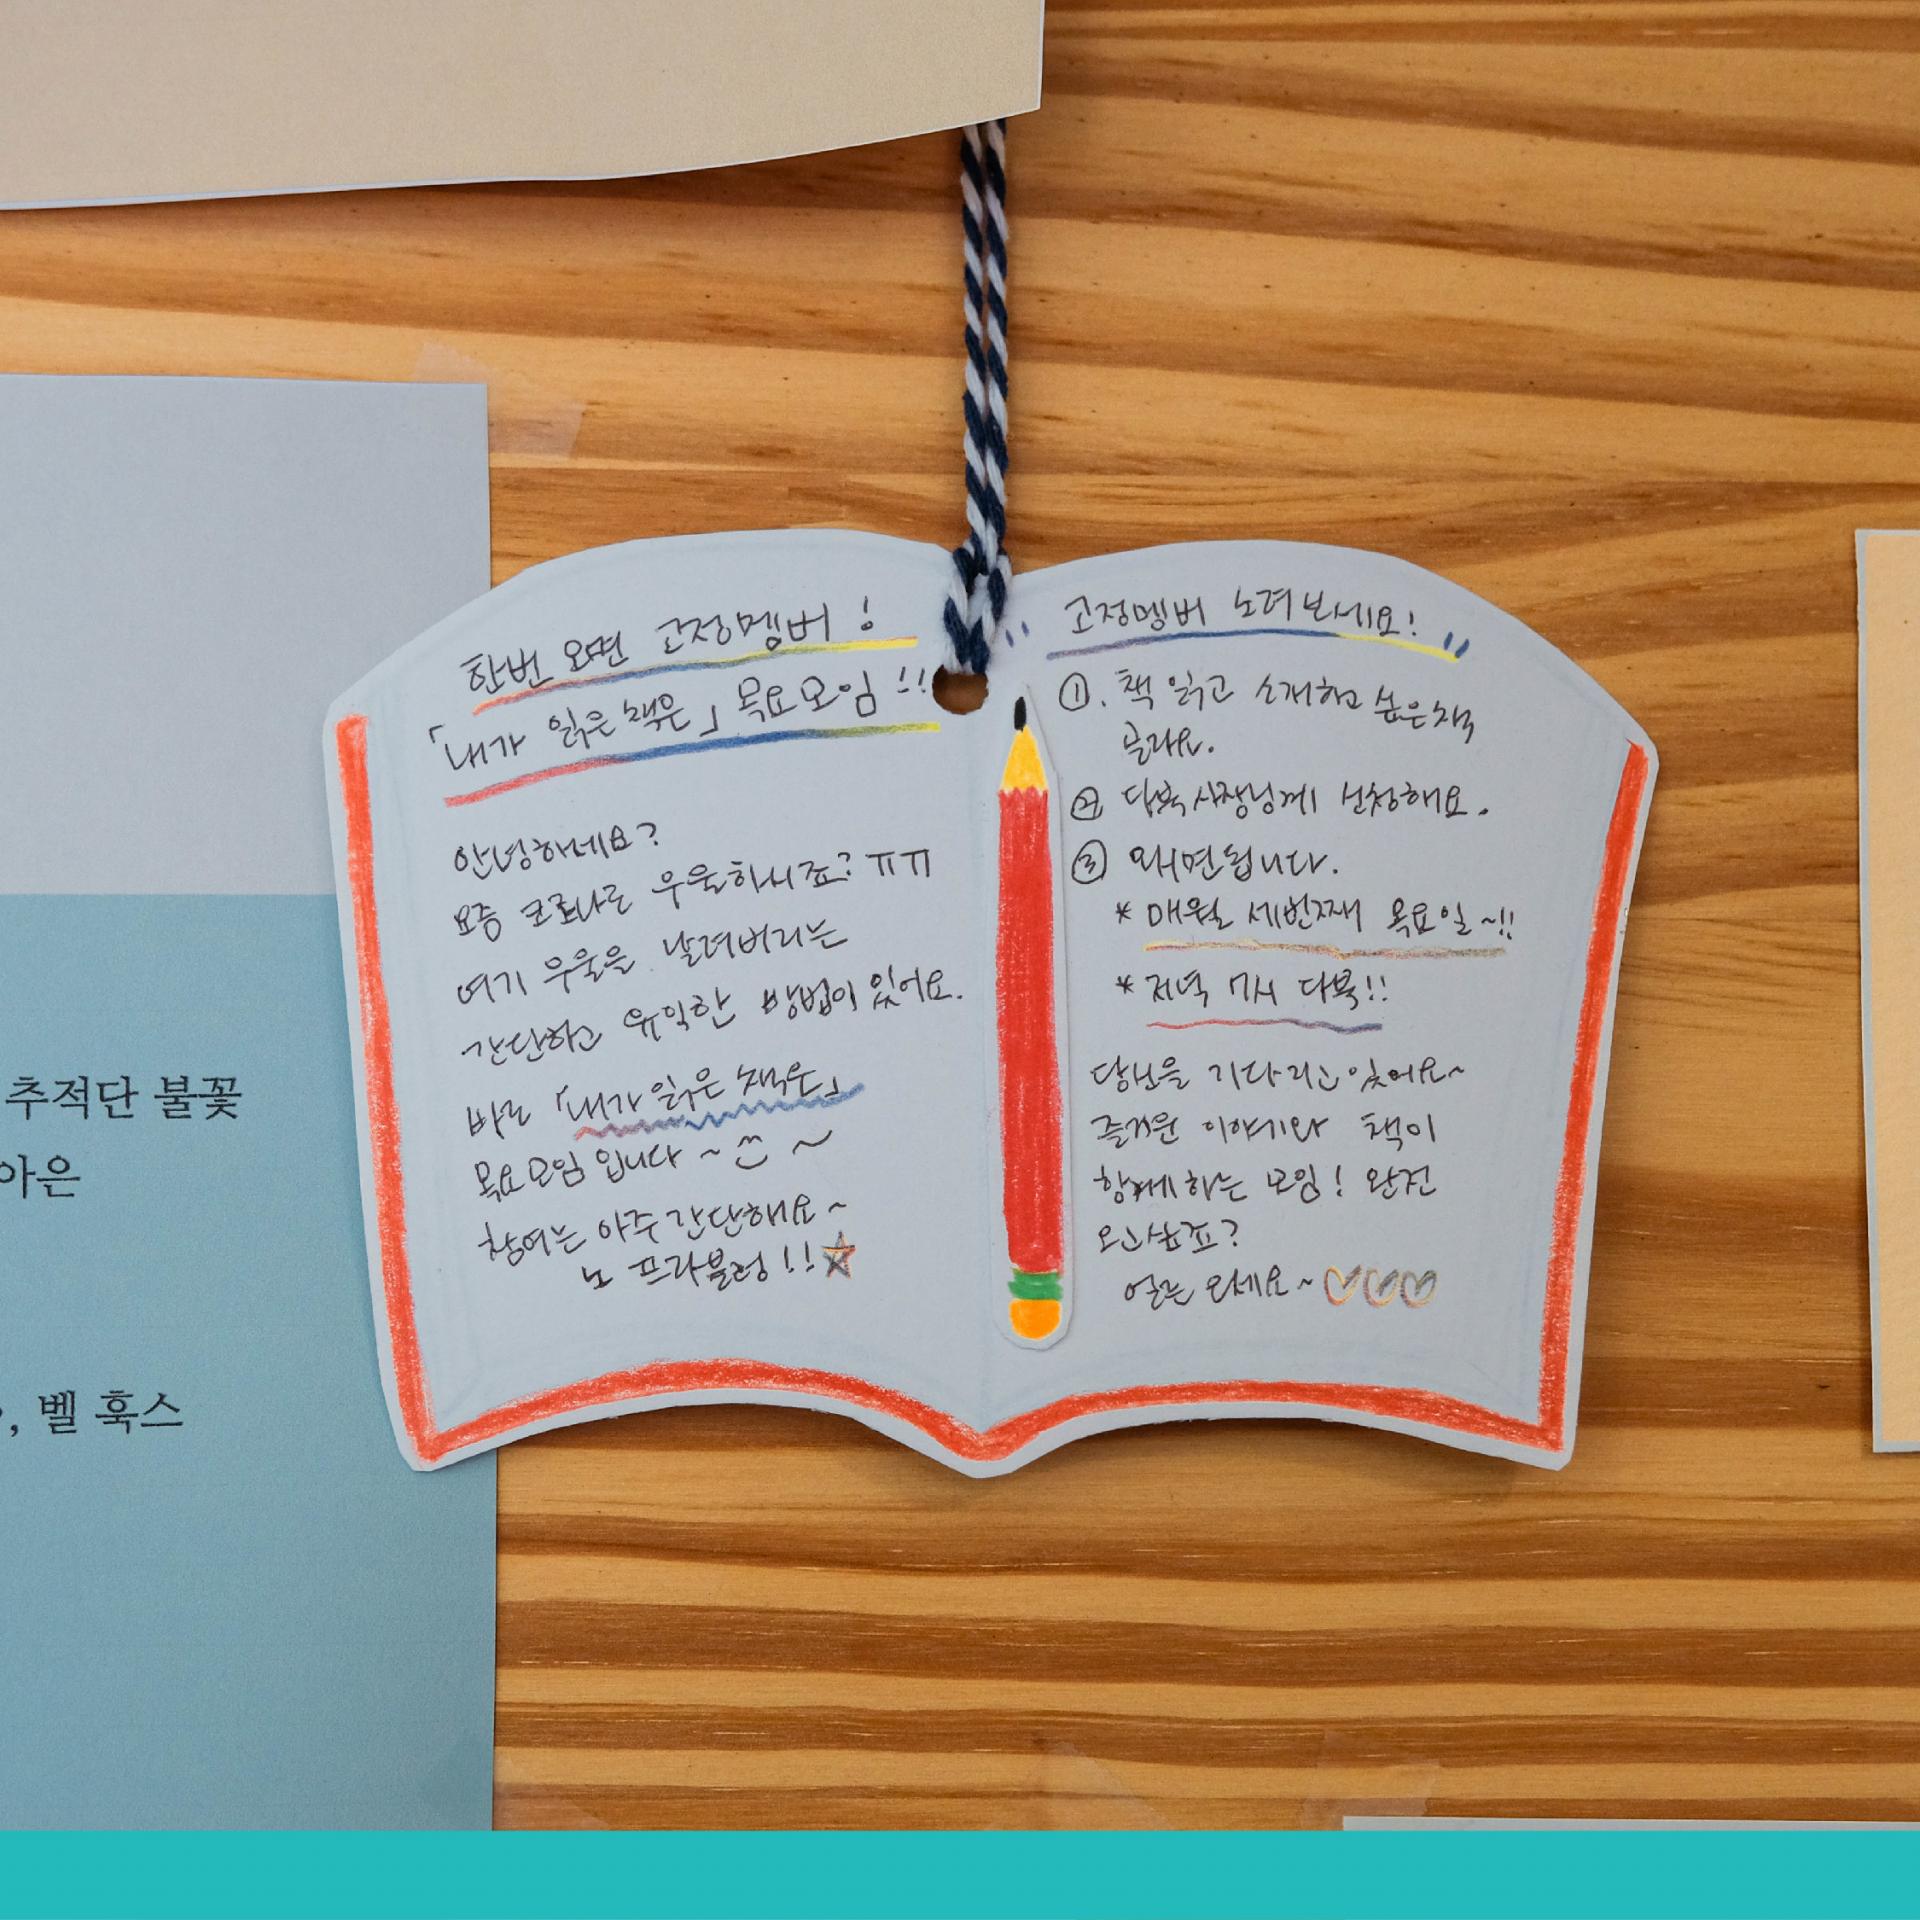 한번 오면 고정멤버!
「내가 읽은 책은」 목요모임!!
안녕하세요?
요즘 코로나로 우울하시죠? ㅠㅠ
여기 우울을 날려버리는
간단하고 유익한 방법이 있어요.
바로 「내가 읽은 책은」
목요모임 입니다~ ~
참여는 아주 간단해요~
노 프라블럼!!
"고정멤버 노려보세요!"
①. 책 읽고 소개하고 싶은 책
골라요.
② 다복사장님께 신청해요.
③ 오시면 됩니다.
* 매월 세번째 목요일~!!
* 저녁 7시 다복!!
당신을 기다리고 있어요~
즐거운 이야기와 책이
함께하는 모임! 완전
오고싶죠?
얼른 오세요~♡♡♡
추적단 불꽃
아은
, 벨 훅스